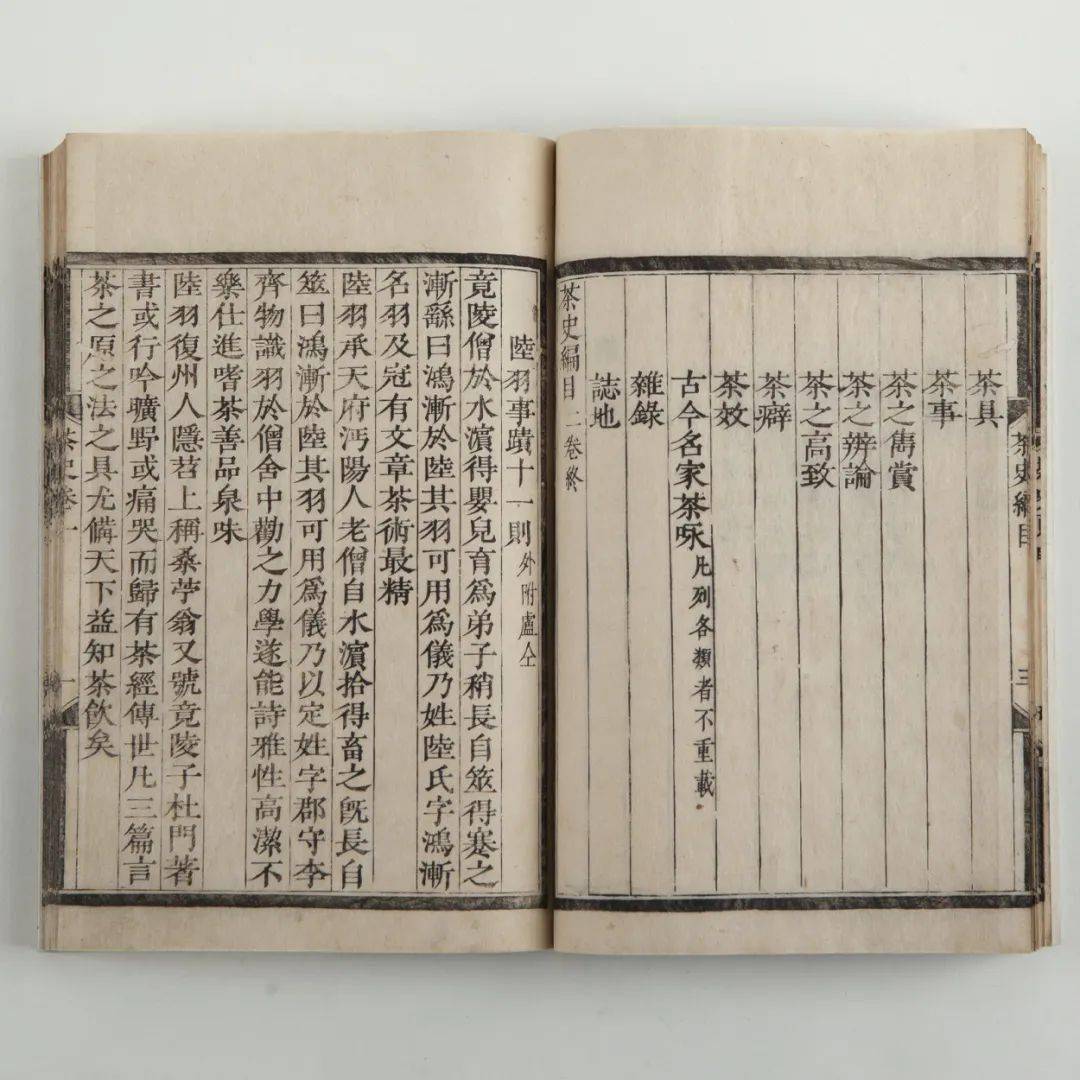 茶史編目
三
茶具
茶事
茶之雋賞
茶之辨論
茶之高致
茶癖
茶效
古今名家茶咏凡列各類者不重載
雜錄
誌地
茶史編目二卷終
陸羽事蹟十一則外附盧仝
竟陵僧於水濵得嬰兒育爲弟子稍長自筮得蹇之
漸繇曰鴻漸於陸其羽可用爲儀乃姓陸氏字鴻漸
名羽及冠有文章茶術最精
陸羽承天府沔陽人老僧自水濵拾得畜之旣長自
筮曰鴻漸於陸其羽可用爲儀乃以定姓字郡守李
齊物識羽於僧舍中勸之力學遂能詩雅性高潔不
樂仕進嗜茶善品泉味
陸羽復州人隱苕上稱桑苧翁又號竟陵子杜門著
書或行吟曠野或痛哭而歸有茶經傳世凡三篇言
茶之原之法之具尤備天下益知茶飲矣
茶史卷一
一